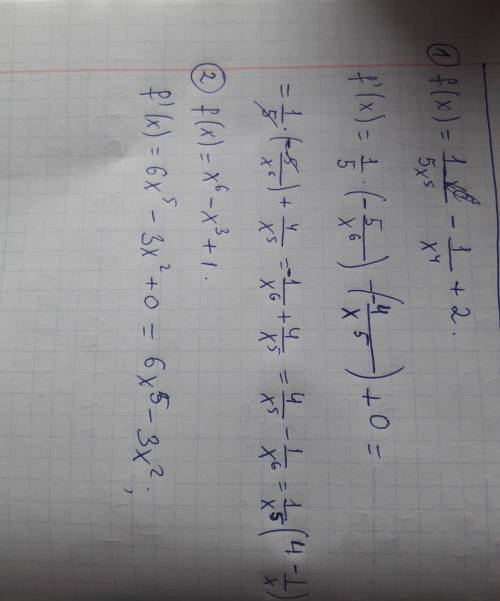 ① f(x) = 1/5x⁵ - 1/x⁴ + 2.
f'(x) = 1/5 · (-5/x⁶) - (-4/x⁵) + 0 =
= 1/5 · (-5/x⁶) + 4/x⁵ = -1/x⁶ + 4/x⁵ = 4/x⁵ - 1/x⁶ = 1/x⁵ (4 - 1/x)
② f(x) = x⁶ - x³ + 1.
f'(x) = 6x⁵ - 3x² + 0 = 6x⁵ - 3x²;